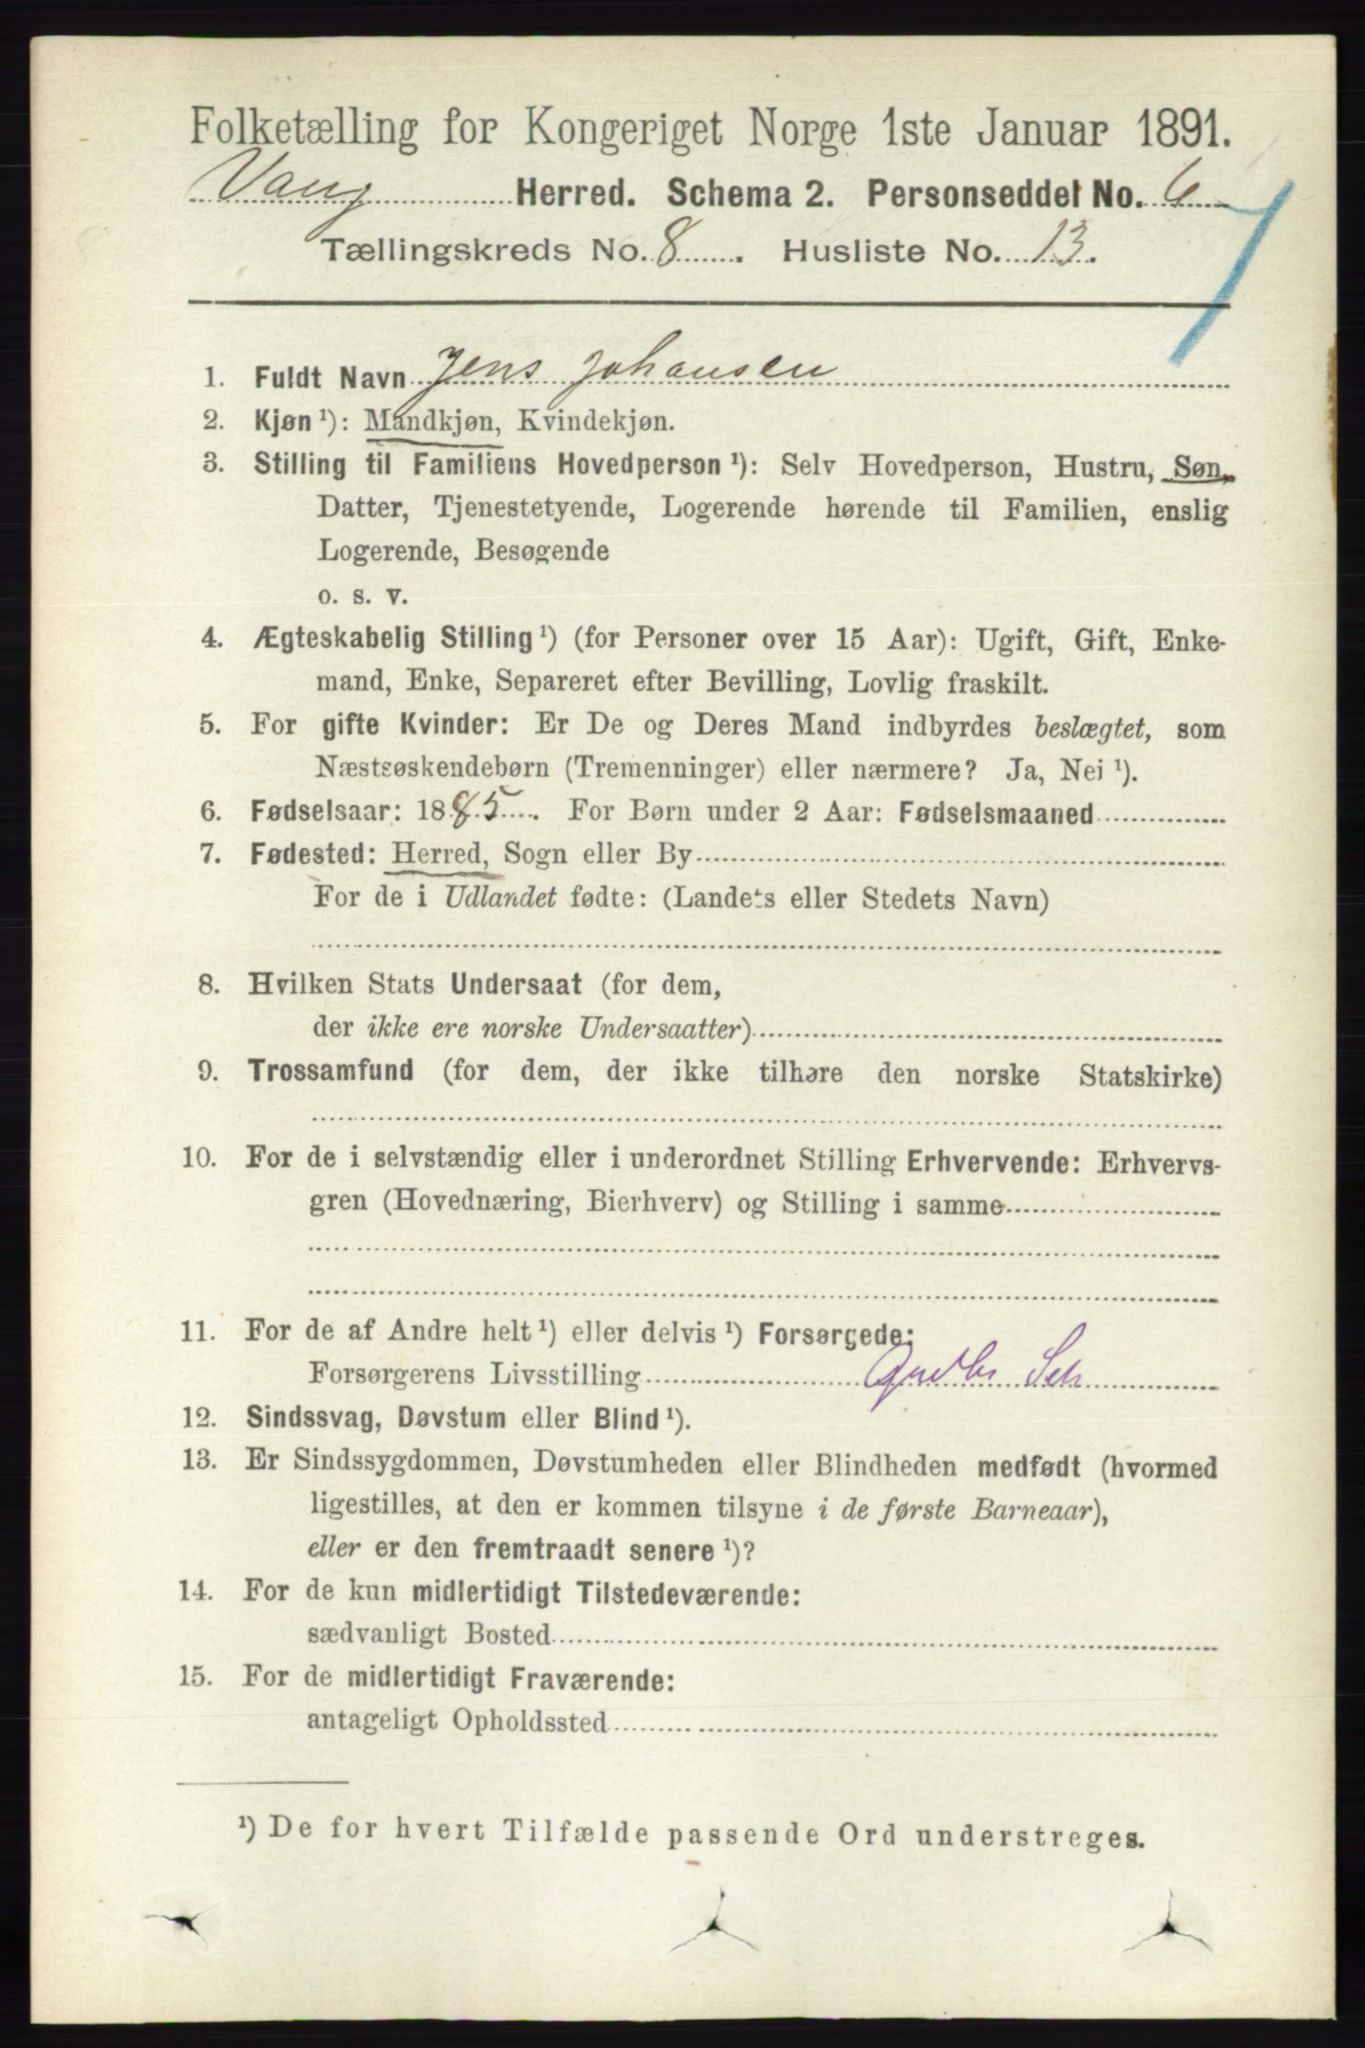 Folketælling for Kongeriget Norge 1ste Januar 1891.
Vang Herred. Schema 2. Personseddel No. 6
Tællingskreds No. 8. Husliste No. 13.
1. Fuldt Navn Jens Johansen
2. Kjøn ¹): Mandkjøn, Kvindekjøn.
3. Stilling til Familiens Hovedperson ¹): Selv Hovedperson, Hustru, Søn,
Datter, Tjenestetyende, Logerende hørende til Familien, enslig
Logerende, Besøgende
o. s. v.
4. Ægteskabelig Stilling ¹) (for Personer over 15 Aar): Ugift, Gift, Enke-
mand, Enke, Separeret efter Bevilling, Lovlig fraskilt.
5. For gifte Kvinder: Er De og Deres Mand indbyrdes beslægtet, som
Næstsøskendebørn (Tremenninger) eller nærmere? Ja, Nei ¹).
6. Fødselsaar: 1885. For Børn under 2 Aar: Fødselsmaaned
7. Fødested: Herred, Sogn eller By
For de i Udlandet fødte: (Landets eller Stedets Navn)
8. Hvilken Stats Undersaat (for dem,
der ikke ere norske Undersaatter)
9. Trossamfund (for dem, der ikke tilhøre den norske Statskirke)
10. For de i selvstændig eller i underordnet Stilling Erhvervende: Erhvervs-
gren (Hovednæring, Bierhverv) og Stilling i samme
11. For de af Andre helt ¹) eller delvis ¹) Forsørgede:
Forsørgerens Livsstilling
12. Sindssvag, Døvstum eller Blind ¹).
13. Er Sindssygdommen, Døvstumheden eller Blindheden medfødt (hvormed
ligestilles, at den er kommen tilsyne i de første Barneaar),
eller er den fremtraadt senere ¹)?
14. For de kun midlertidigt Tilstedeværende:
sædvanligt Bosted
15. For de midlertidigt Fraværende:
antageligt Opholdssted
¹) De for hvert Tilfælde passende Ord understreges.